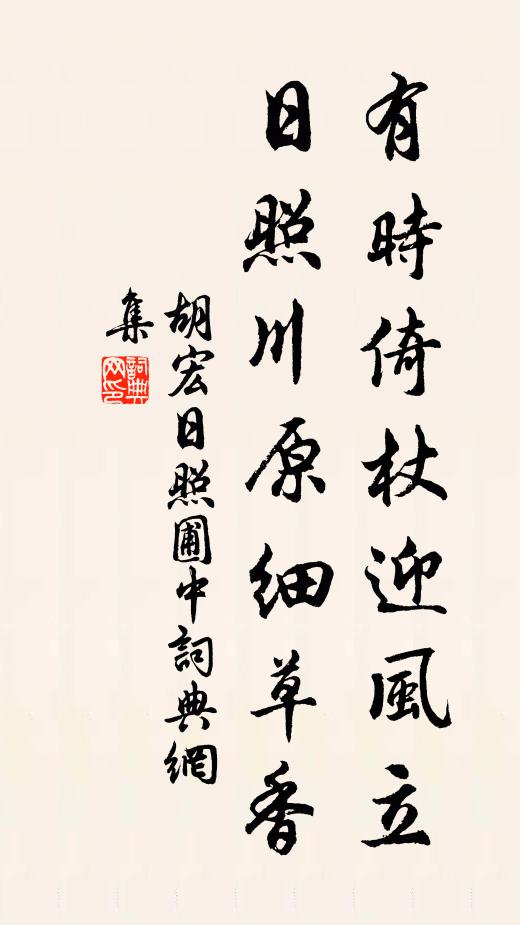 有時倚杖迎風立
日照川原細草香
胡宏日照圃中詞典網
集
詞典網印